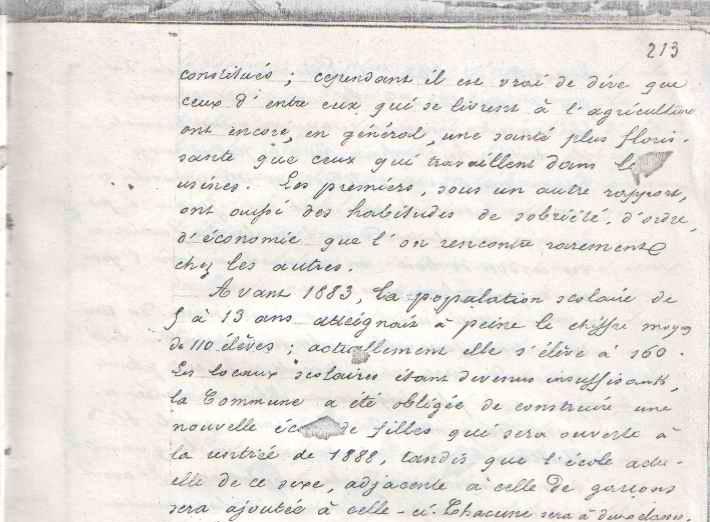 213
constitués ; cependant il est vrai de dire que
ceux d'entre eux qui se livrent à l'agriculture
ont encore, en général, une santé plus floris-
sante que ceux qui travaillent dans les
usines. Les premiers, sous un autre rapport,
ont aussi des habitudes de sobriété, d'ordre,
d'économie que l'on rencontre rarement
chez les autres.
Avant 1883, la population scolaire de
5 à 13 ans atteignait à peine le chiffre moyen
de 110 élèves ; actuellement elle s'élève à 160.
Les locaux scolaires étant devenus insuffisants,
la Commune a été obligée de construire une
nouvelle école de filles qui sera ouverte à
la rentrée de 1888, tandis que l'école actu-
elle de ce sexe, adjacente à celle de garçons
sera ajoutée à celle-ci. Chacune sera à deux classes,